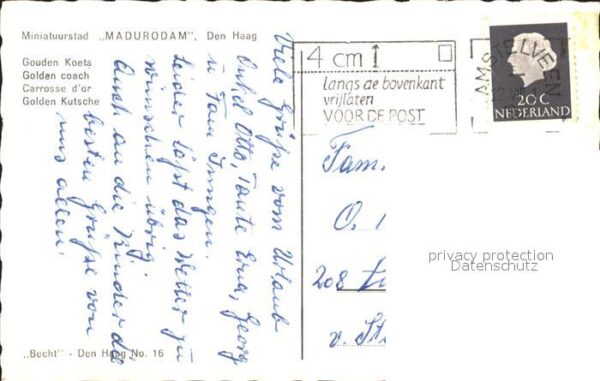 Miniatuurstad „MADURODAM", Den Haag
Gouden Koets
Golden coach
Carrosse d'or
Golden Kutsche
Viele Grüße vom Urlaub
Onkel Otto, Tante Erna, Georg
u. Fam.
Leider läßt das Wetter zu
wünschen übrig.
Auch an die Kinder die
besten Grüße von
uns allen.
„Becht" - Den Haag No. 16
4 cm
langs de bovenkant
vrijlaten
VOOR DE POST
AMSTELVEEN
20 C
NEDERLAND
Fam.
O.
208
v. St
privacy protection
Datenschutz